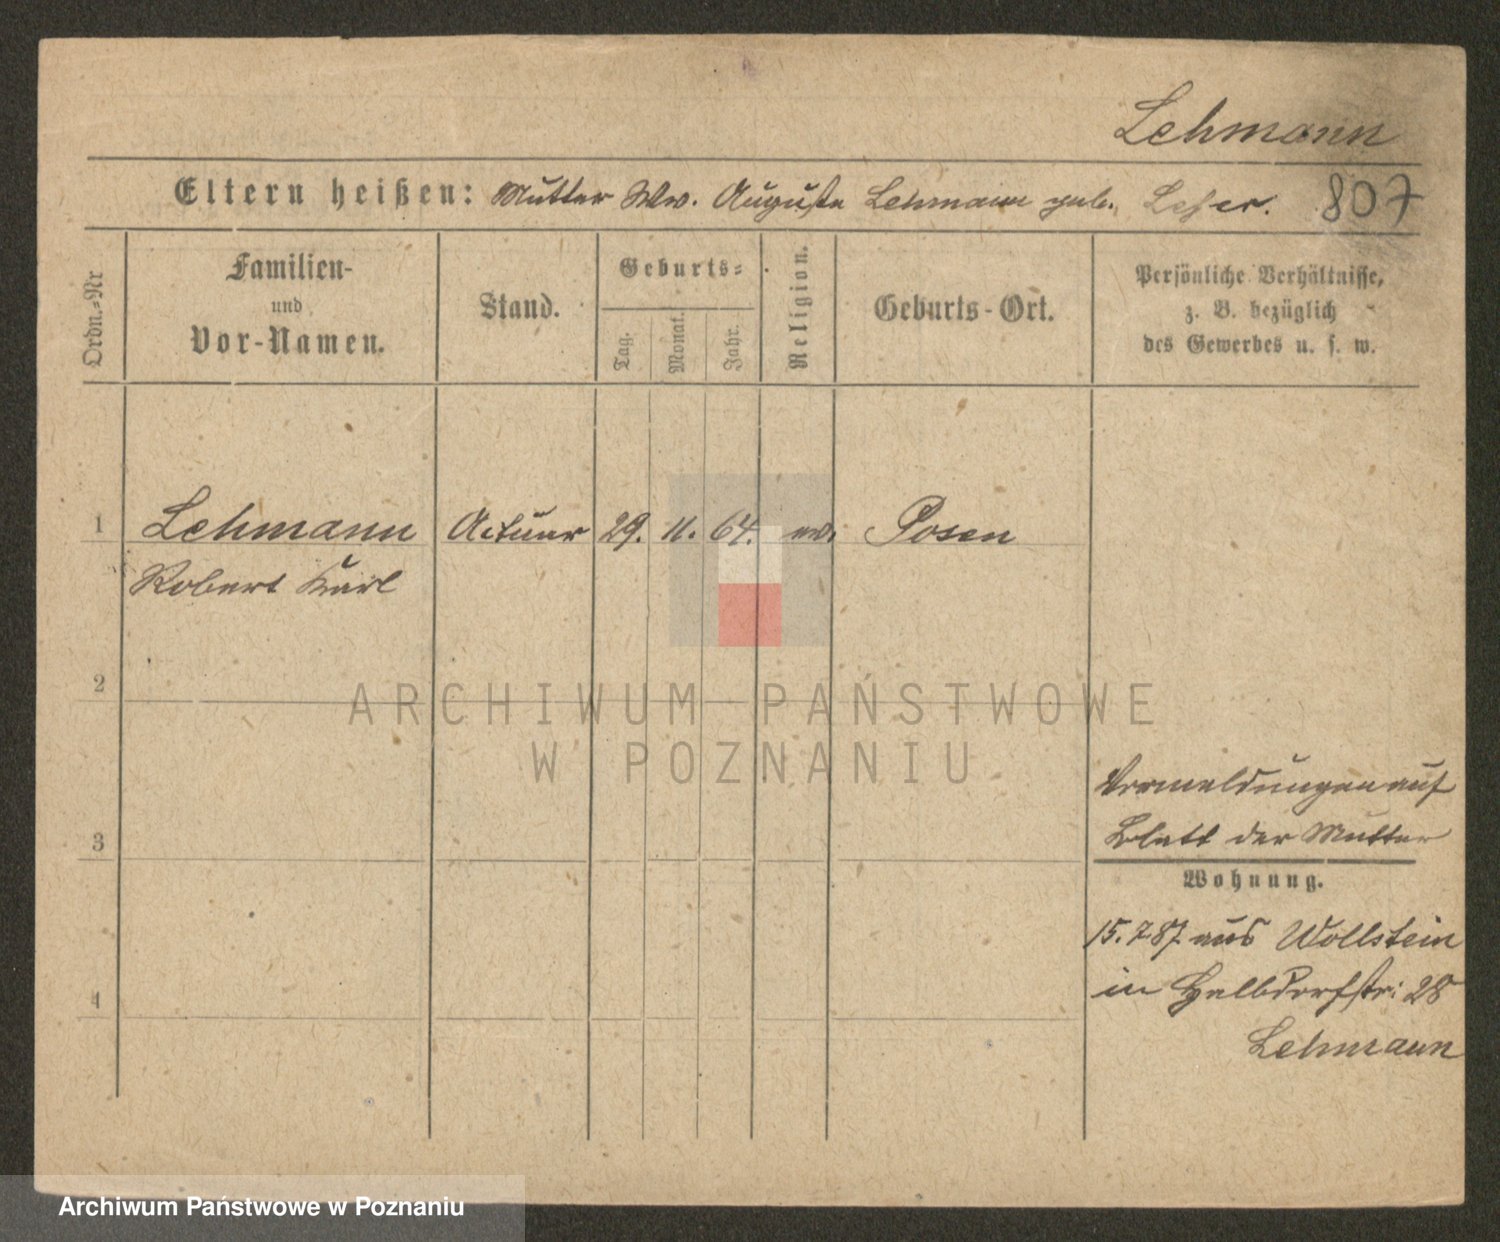 Lehmann
Eltern heißen: Mutter Ww. Auguste Lehmann geb. Leser. 807
Ordn.-Nr
Familien-
und
Vor-Namen.
Stand.
Geburts-
Tag.
Monat.
Jahr.
Religion.
Geburts-Ort.
Persönliche Verhältnisse,
z. B. bezüglich
des Gewerbes u. s. w.
1 Lehmann Actuar 29. 11. 64. ev. Posen
Robert Karl
2
ARCHIWUM PAŃSTWOWE
W POZNANIU
Vermeldungen auf
3 Blatt der Mutter
Wohnung.
15.7.87 aus Wollstein
4 in Halbdorfstr: 28
Lehmann
Archiwum Państwowe w Poznaniu